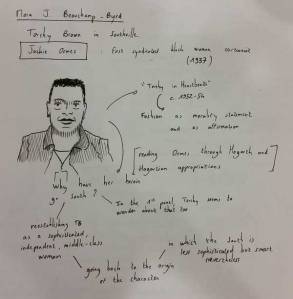 Moia J. Beauchamp-Byrd
Torchy Brown in Southville
Jackie Ormes : first syndicated black woman cartoonist
(1937)
"Torchy in Heartbeats"
c. 1952-54
Fashion as morality statement
and as affirmation
[reading Ormes, through Hogarth and
Hogarthian appropriations]
Why have her heroin
go South ?
In the 1st panel, Torchy seems to
wonder about that too
reestablishing TB
as a sophisticated,
independent, middle-class
woman
going back to the origin
of the character
in which the South is
less sophisticated but smart
nevertheless